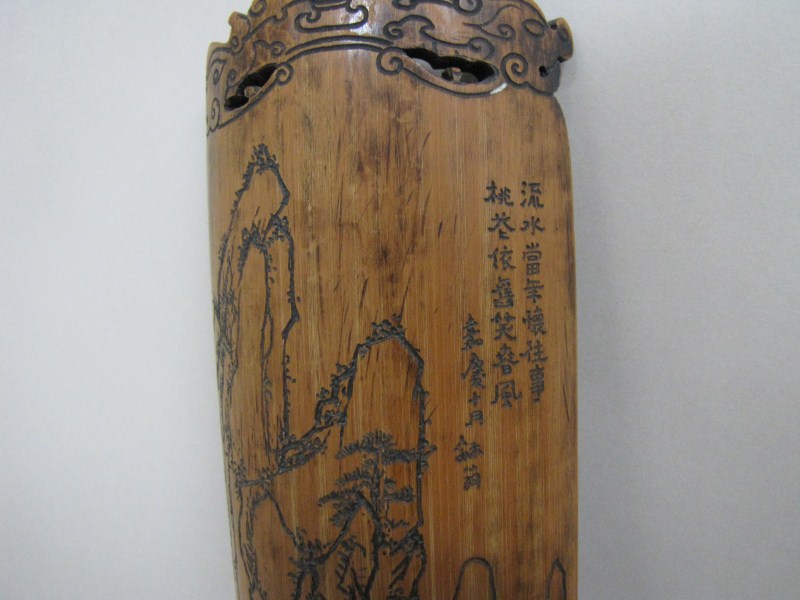 流水當年懷往事
桃花依舊笑春風
嘉慶十月